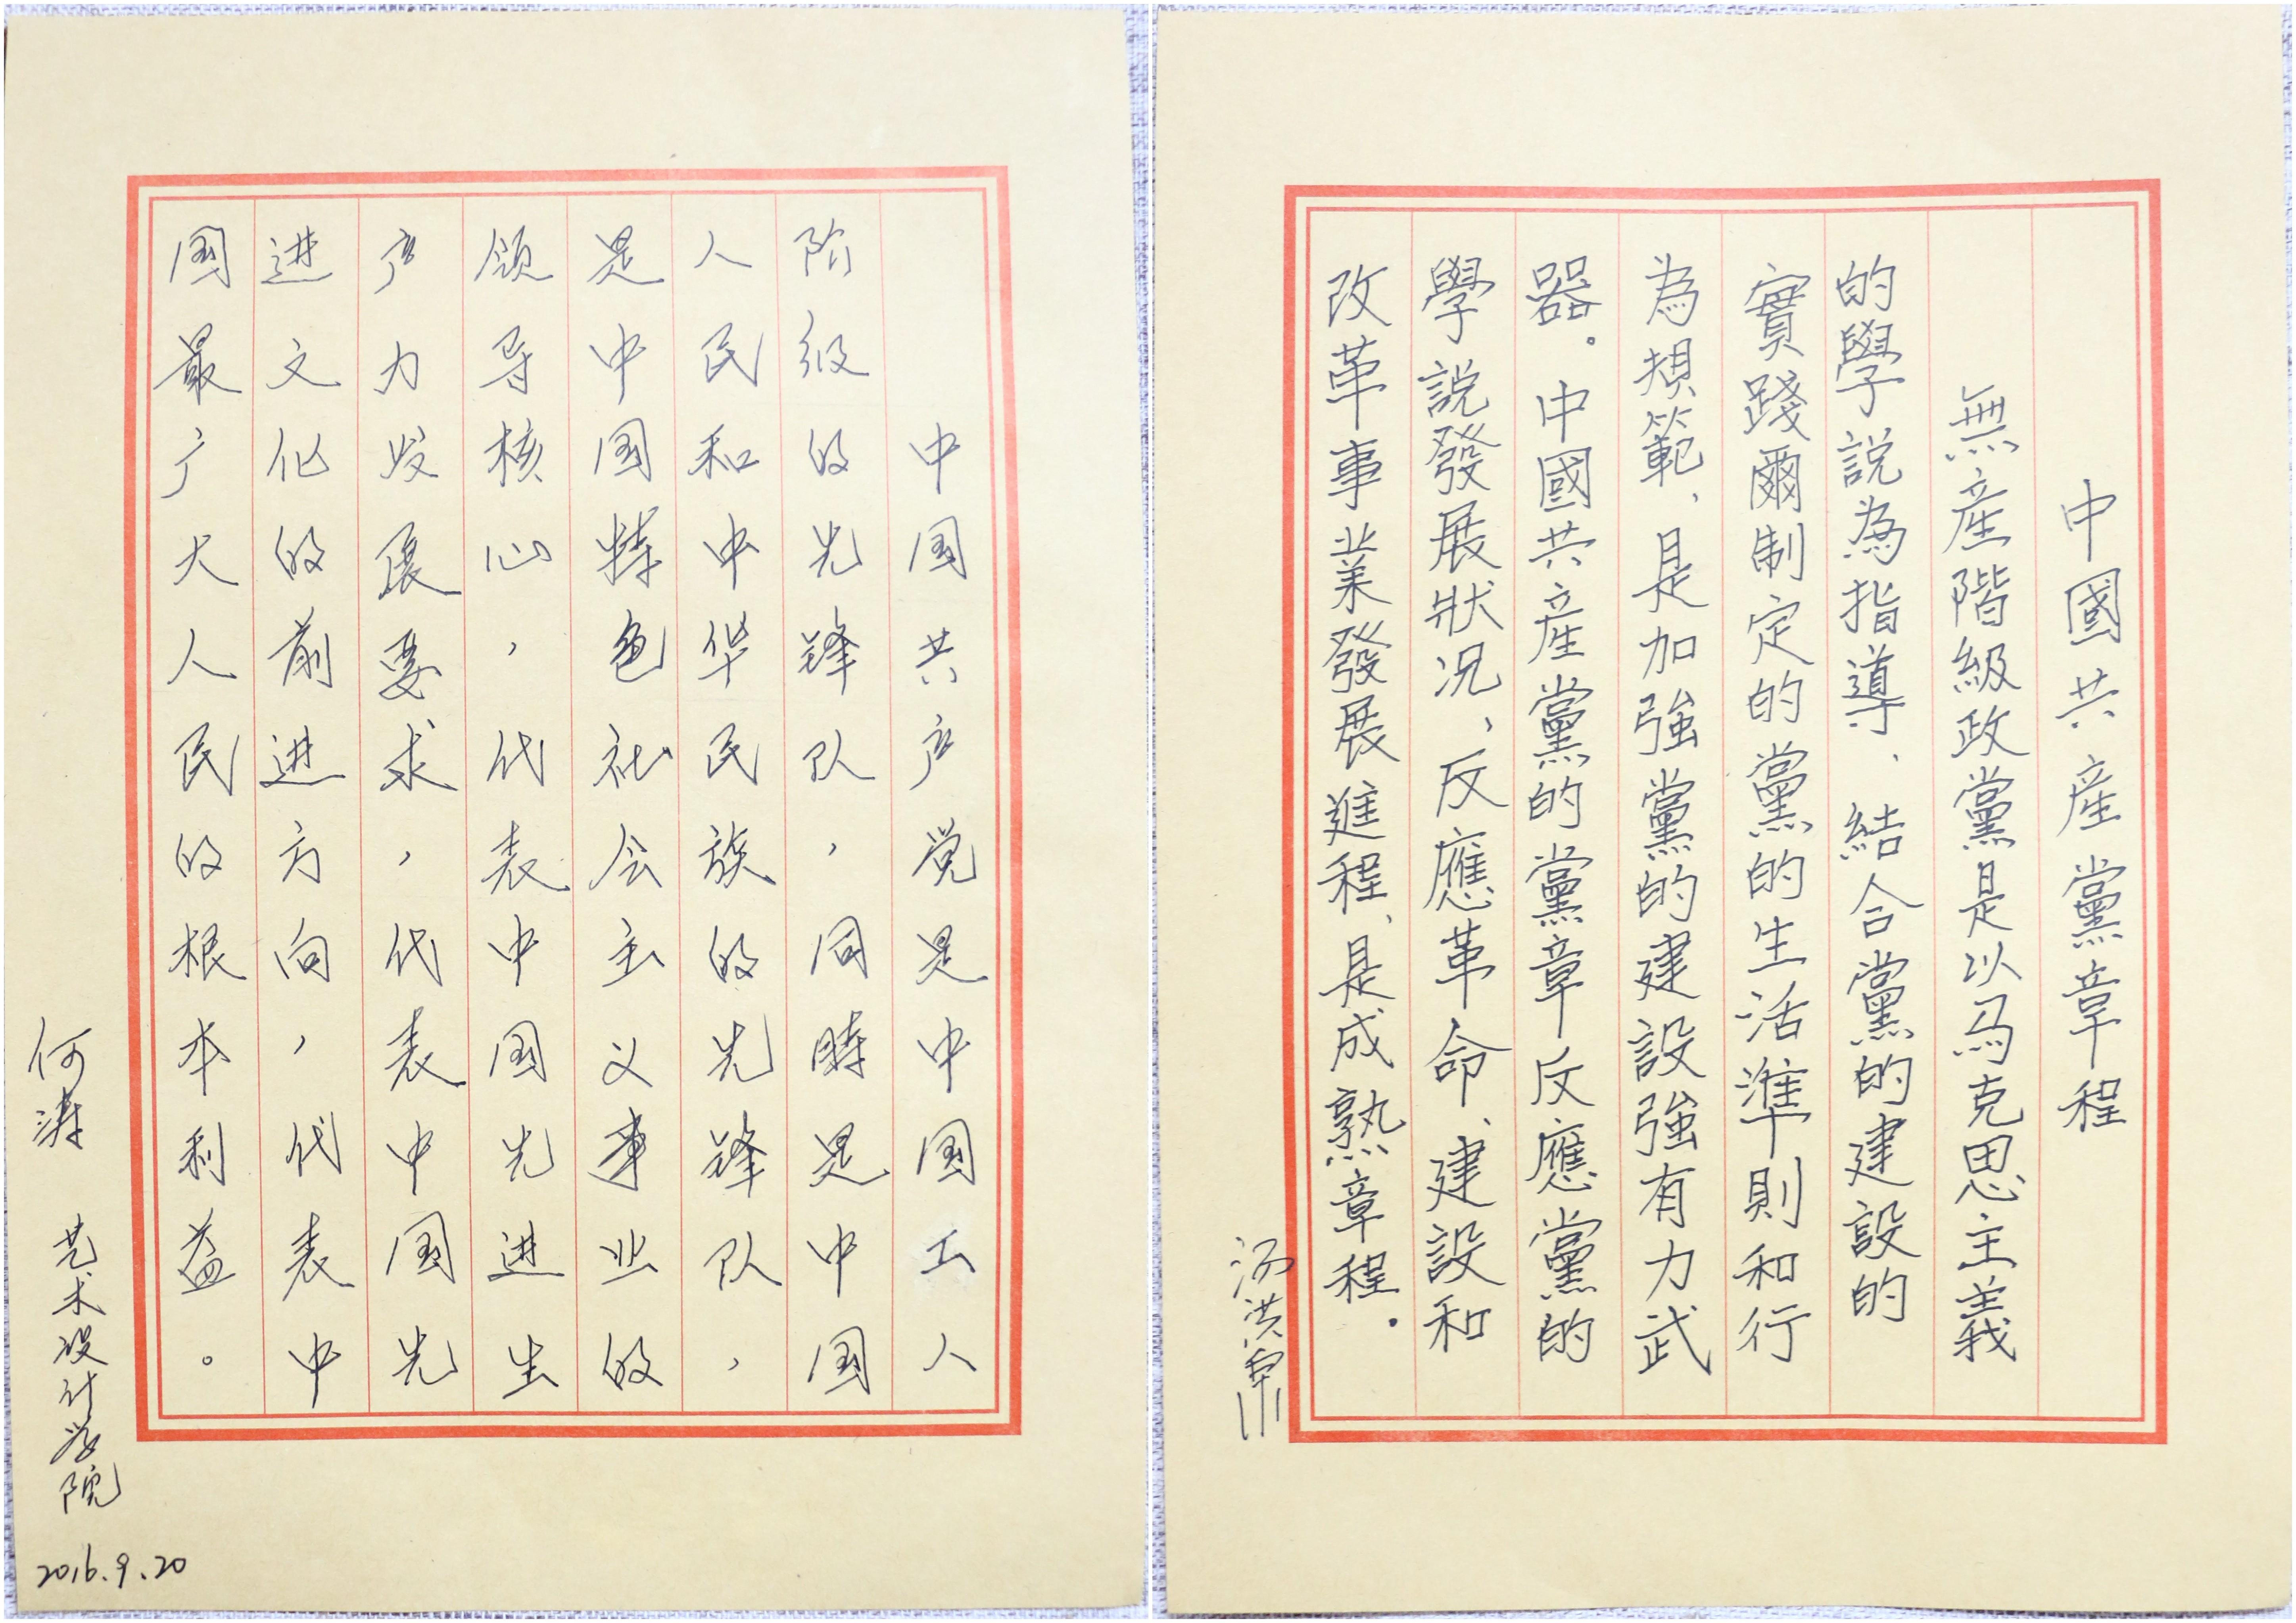 中国共产党是中国工人
阶级的先锋队，同時是中国
人民和中华民族的先锋队，
是中国特色社会主义事业的
领导核心，代表中国先进生
产力发展要求，代表中国先
进文化的前进方向，代表中
国最广大人民的根本利益。
何涛 艺术设计学院
2016.9.20
中國共産黨章程
無産階級政黨是以马克思主義
的學説為指導、結合黨的建設的
實踐爾制定的黨的生活準則和行
為規範、是加強黨的建設強有力武
器。中國共産黨的黨章反應黨的
學説發展狀况、反應革命、建設和
改革事業發展進程、是成熟章程.